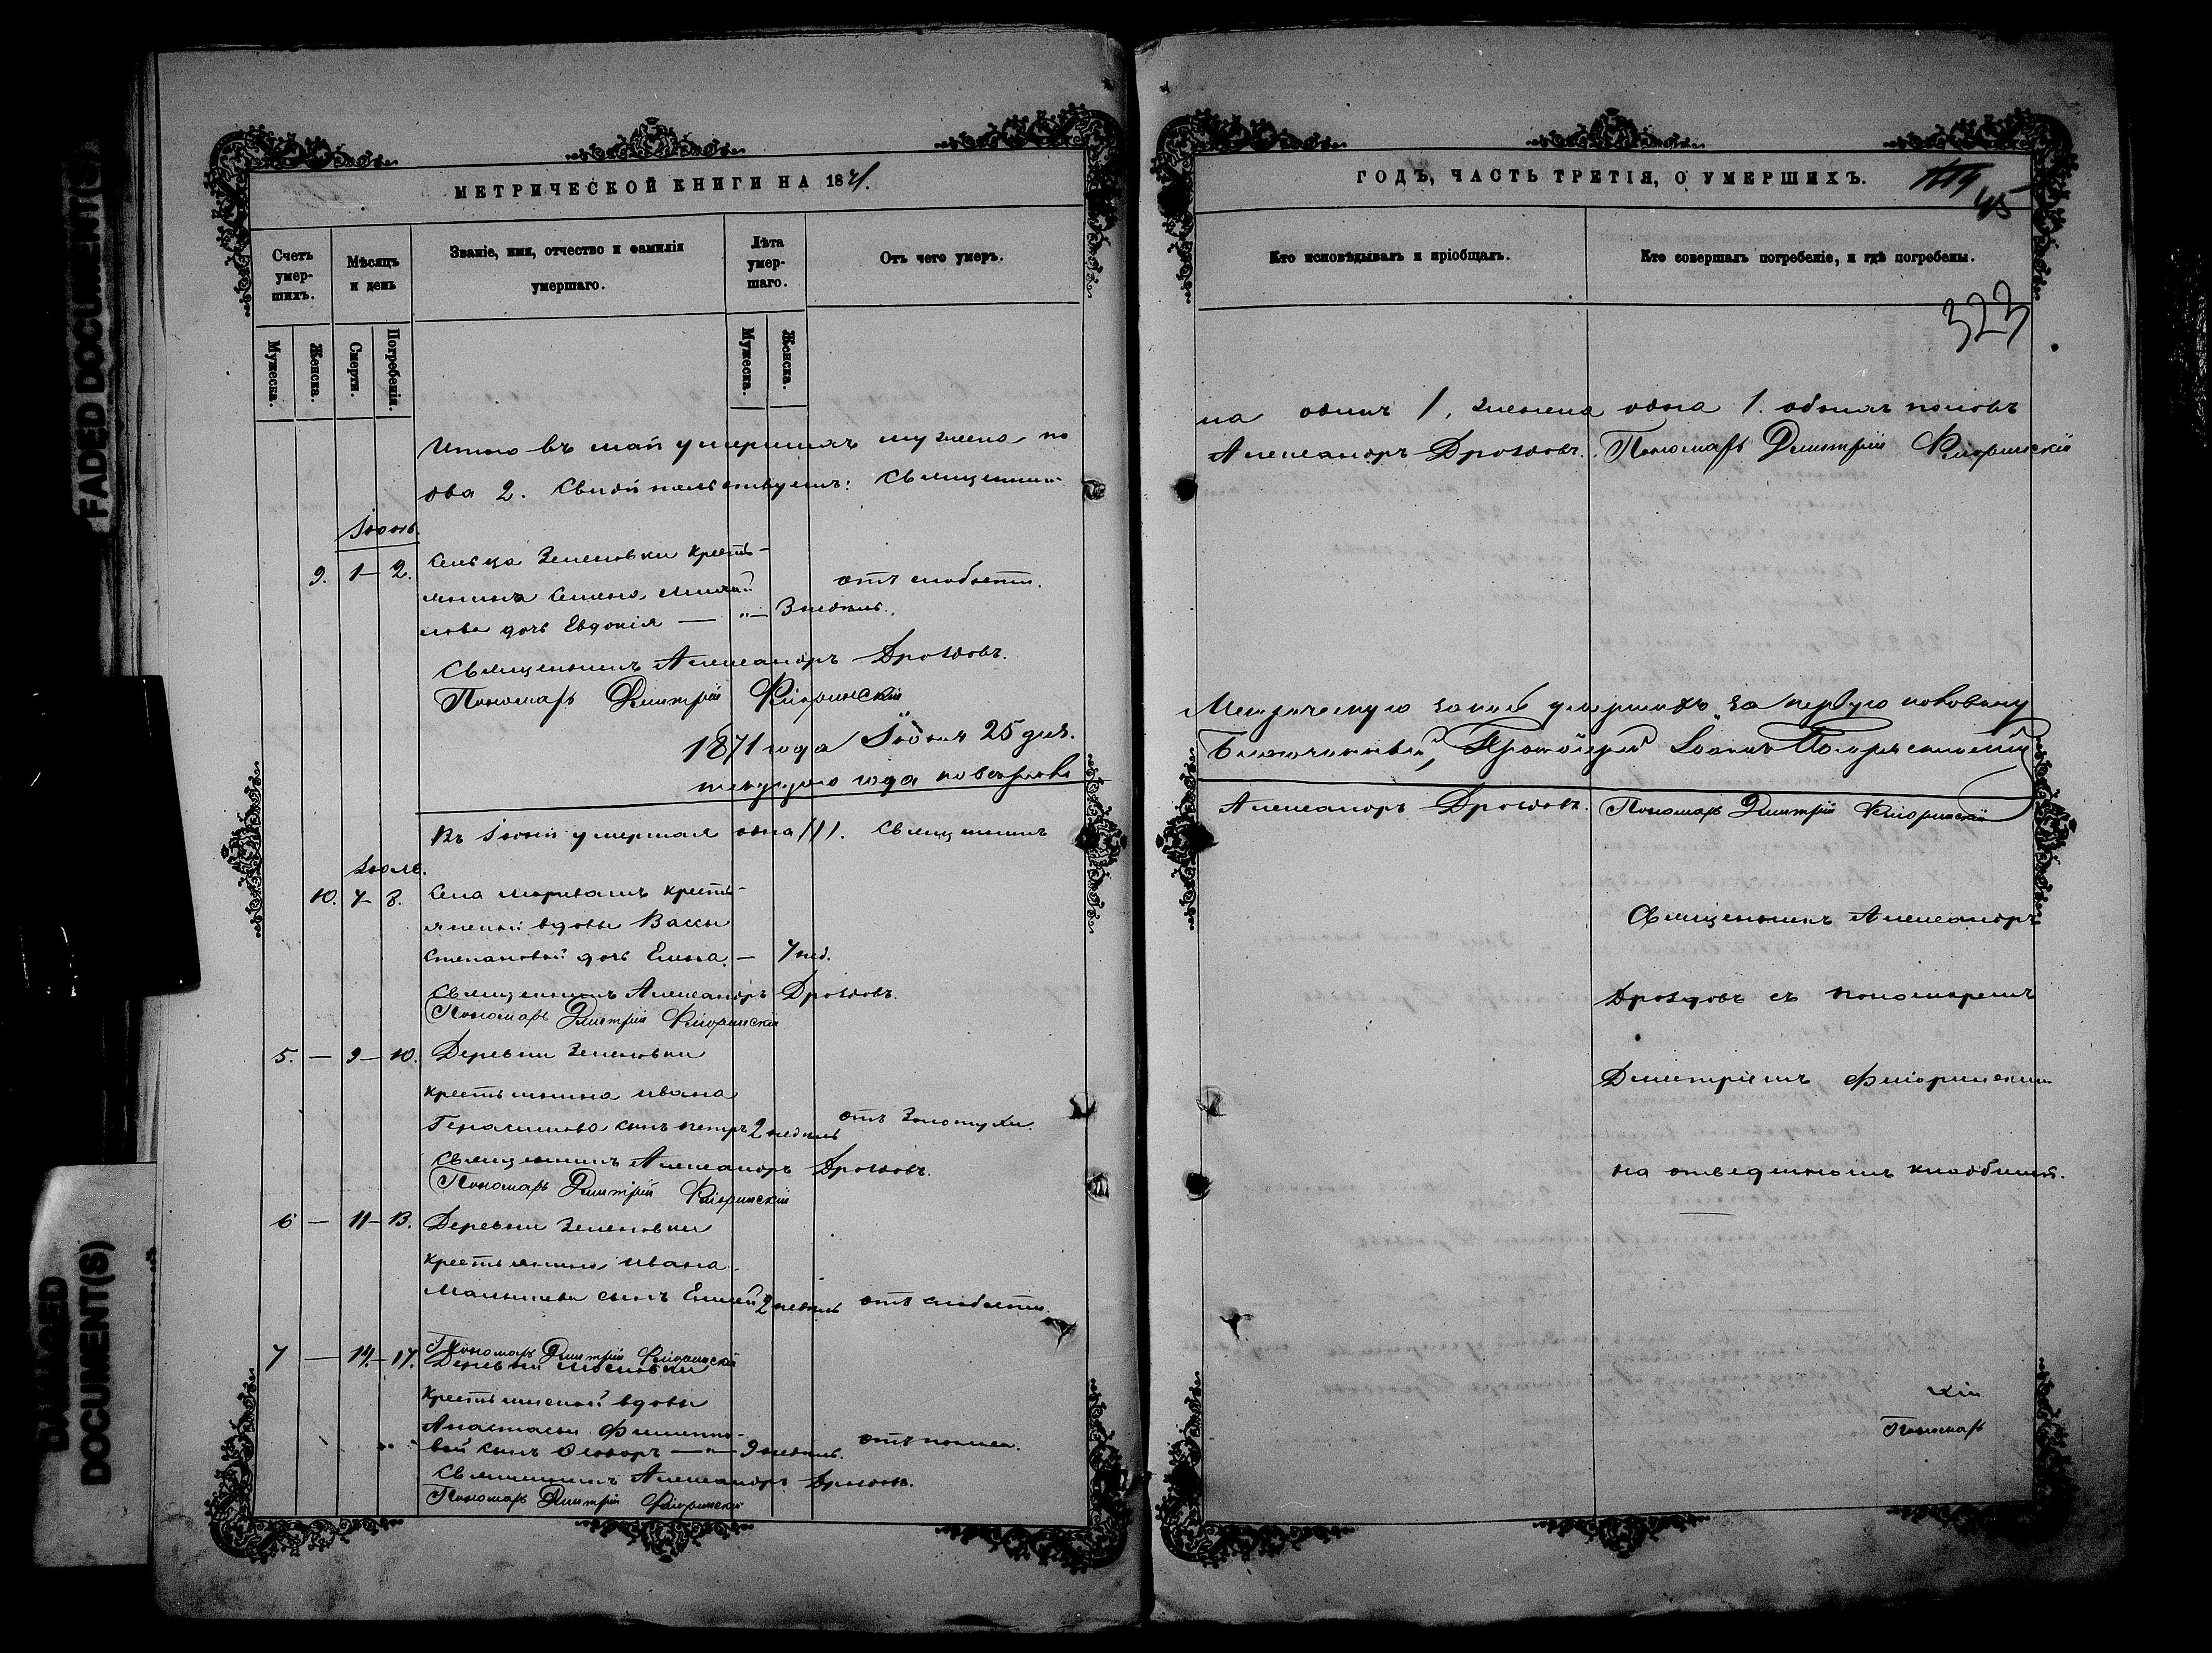 FADED DOCUMENT(S)
DOCUMENT(S)
МЕТРИЧЕСКОЙ КНИГИ НА 1871.
Счетъ умер-шихъ.
Мѣсяцъ и день
Званіе, имя, отчество и фамилія умершаго.
Лѣта умер-шаго.
Отъ чего умеръ.
Мужеска.
Женска.
Смерти.
Погребенія.
Мужеска.
Женска.
Итого въ маѣ умершихъ мужеска по
два 2. Свидѣтельствуемъ: Священникъ
Іюнь.
9. 1 – 2. Сельца Зеленовки кресть-
янина Семена
дочь Евдокія — „ — 3 недѣль. отъ слабости.
Священникъ Александръ Дроздовъ.
Пономарь Димитрій Флоринскій
1871 года Іюня 25 дня.
текущаго года
Въ Іюнѣ умершая одна /1/. Священникъ
Іюль.
10. 7 – 8. Села кресть-
янской вдовы Вассы
Степановой дочь Елена. — 7 нед.
Священникъ Александръ Дроздовъ.
Пономарь Димитрій Флоринскій
5. — 9 – 10. Деревни Зеленовки
крестьянина Ивана
Герасимова сынъ Петръ 2 недѣль отъ Золотухи.
Священникъ Александръ Дроздовъ.
Пономарь Димитрій Флоринскій
6 — 11 – 13. Деревни Зеленовки
крестьянина Ивана
сынъ Елисей 2 недѣль отъ слабости.
Пономарь Димитрій Флоринскій
7 — 14. – 17. Деревни
крестьянской вдовы
Анастасьи Филиппо-
вой сынъ Ѳеодоръ — „ — 9 недѣль. отъ поноса.
Священникъ Александръ Дроздовъ.
Пономарь Димитрій Флоринскій
ГОДЪ, ЧАСТЬ ТРЕТІЯ, О УМЕРШИХЪ.
45
Кто исповѣдывалъ и пріобщалъ.
Кто совершалъ погребеніе, и гдѣ погребены.
323
ла одинъ 1, женска одна 1. обоихъ половъ
Александръ Дроздовъ. Пономарь Димитрій Флоринскій
Метрическую запись умершихъ за первую половину
Благочинный, Протоіерей Іоаннъ
Александръ Дроздовъ. Пономарь Димитрій Флоринскій
Священникъ Александръ
Дроздовъ съ пономаремъ
Димитріемъ Флоринскимъ
на отведенномъ кладбищѣ.
Пономарь